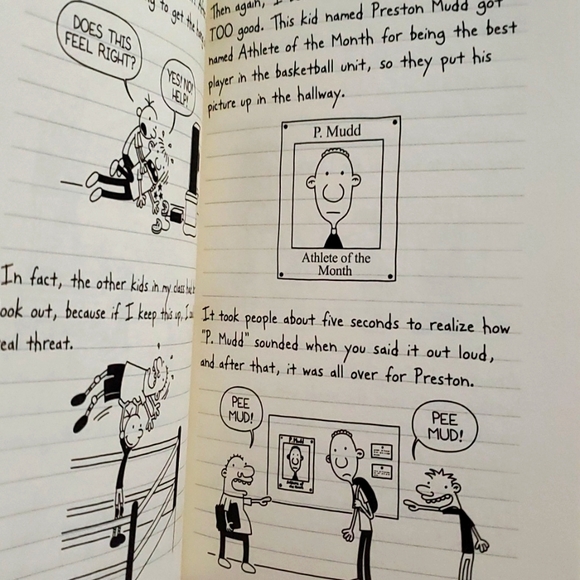 to get the
DOES THIS
FEEL RIGHT?
YES! NO!
HELP!
In fact, the other kids in my class
ook out, because if I keep this up, I
eal threat.
Then again, I
TOO good. This kid named Preston Mudd got
named Athlete of the Month for being the best
player in the basketball unit, so they put his
picture up in the hallway.
P. Mudd
Athlete of the
Month
It took people about five seconds to realize how
"P. Mudd" sounded when you said it out loud,
and after that, it was all over for Preston.
PEE
MUD!
P. Mudd
Athlete of
the Month
PEE
MUD!